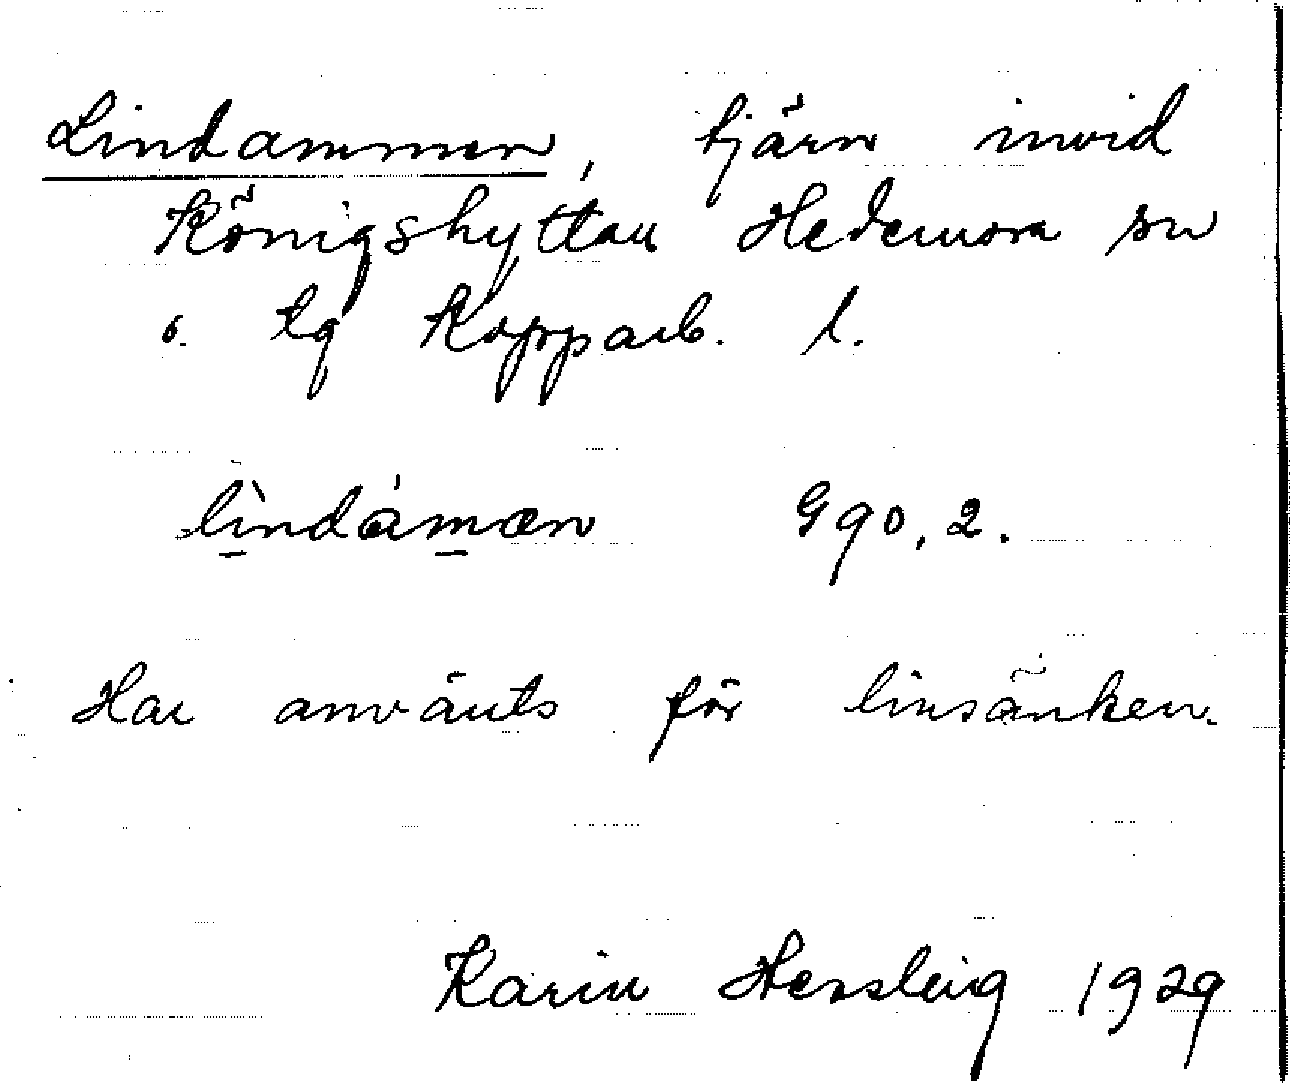 Lindammen, tjärn invid
Königshyttan Hedemora sn
o. tg Kopparb. l.
lìndámæn G 90, 2.
Har använts för linsänken.
Karin Hessleng 1929